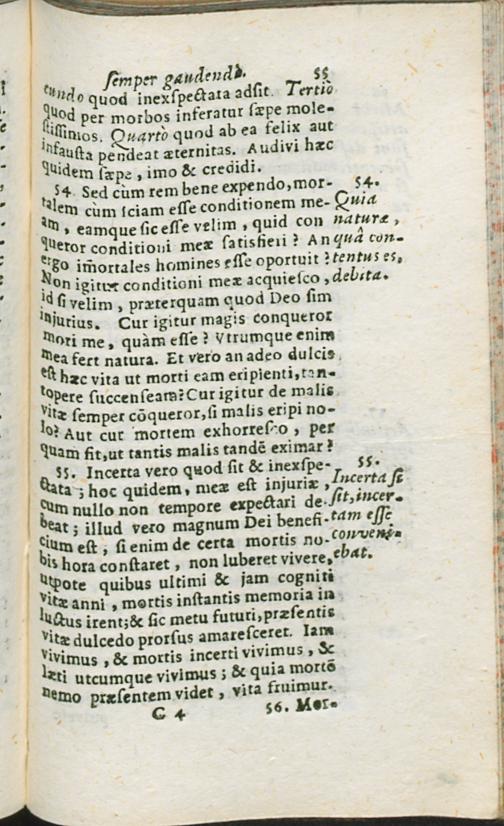 semper gaudendò. 55
eundo quod inexspectata adsit. Tertiò
quod per morbos inferatur sæpe mole-
stissimos. Quartò quod ab ea felix aut
infausta pendeat æternitas. Audivi hæc
quidem sæpe, imo & credidi.
54. Sed cùm rem bene expendo, mor-
talem cùm sciam esse conditionem me-
am, eamque sic esse velim, quid con
queror conditioni meæ satisfieri? An
ergo im̃ortales homines esse oportuit?
Non igitur conditioni meæ acquiesco,
id si velim, præterquam quod Deo sim
injurius. Cur igitur magis conqueror
mori me, quàm esse? Vtrumque enim
mea fert natura. Et vero an adeo dulcis
est hæc vita ut morti eam eripienti, tan-
topere succenseam? Cur igitur de malis
vitæ semper cõqueror, si malis eripi no-
lo? Aut cur mortem exhorresco, per
quam fit, ut tantis malis tandẽ eximar?
55. Incerta vero quod sit & inexspe-
ctata; hoc quidem, meæ est injuriæ,
cum nullo non tempore expectari de-
beat; illud vero magnum Dei benefi-
cium est, si enim de certa mortis no-
bis hora constaret, non luberet vivere,
utpote quibus ultimi & jam cogniti
vitæ anni, mortis instantis memoria in
luctus irent; & sic metu futuri, præsentis
vitæ dulcedo prorsus amaresceret. Iam
vivimus, & mortis incerti vivimus, &
læti utcumque vivimus; & quia mortẽ
nemo præsentem videt, vita fruimur.
G 4 56. Mor-
54.
Quia
naturæ,
quâ con-
tentus es,
debita.
55.
Incerta si
sit, incer-
tam esse
conveni-
ebat.